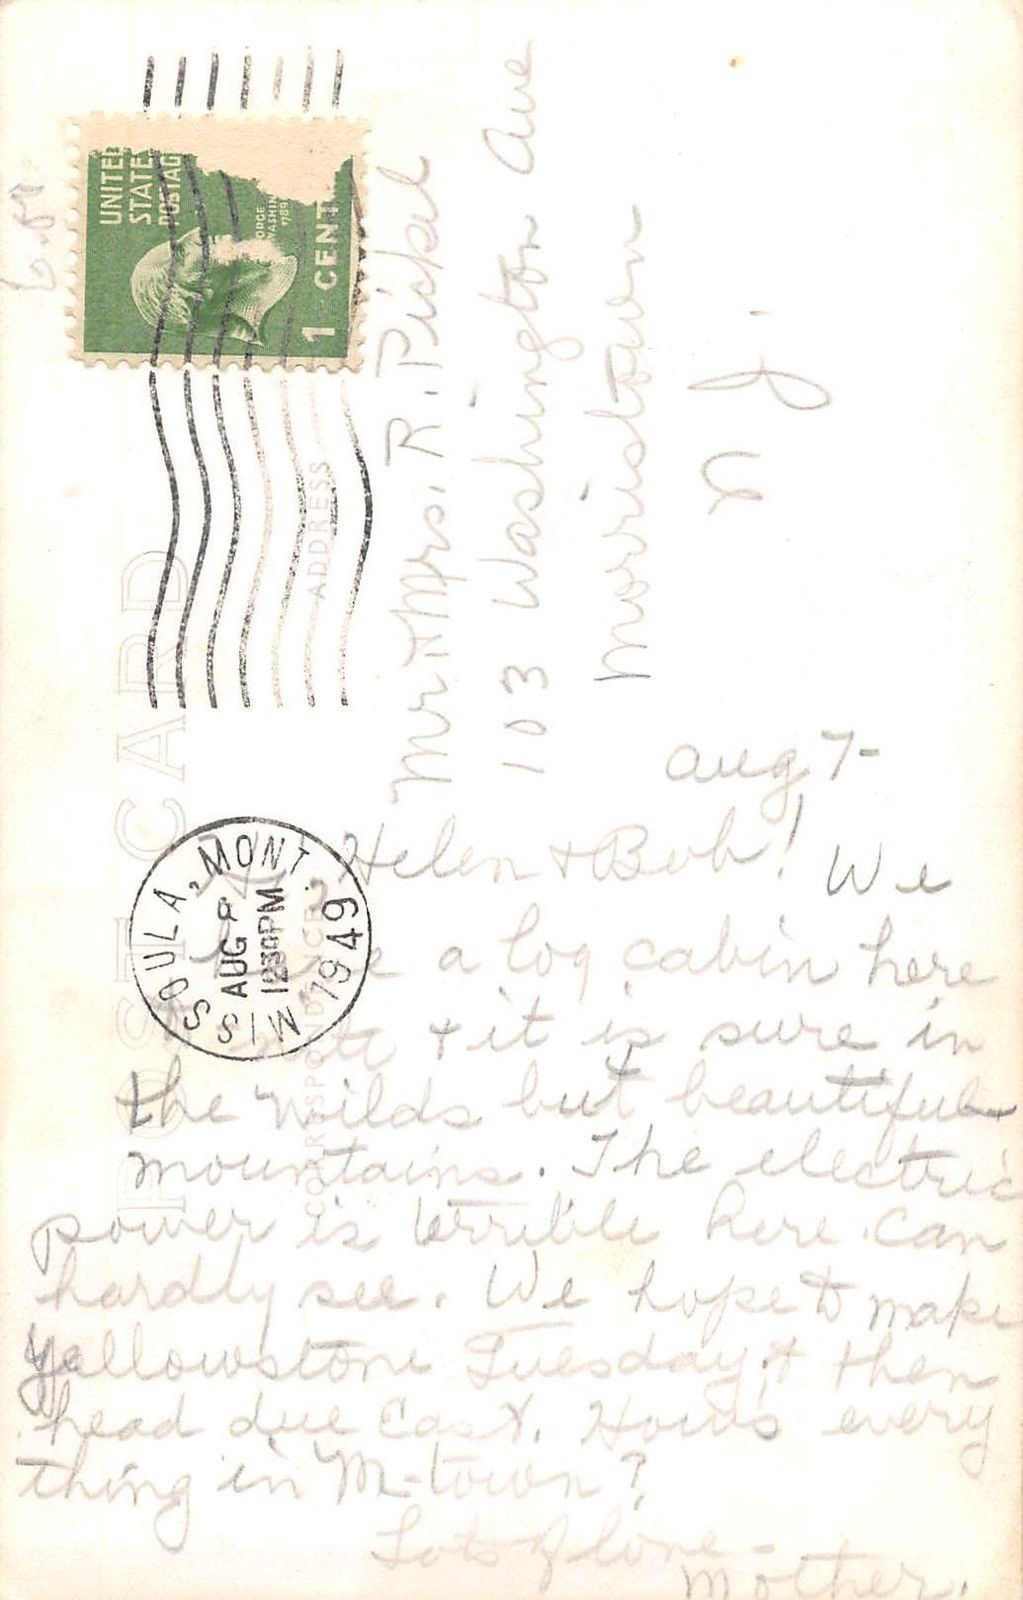 6.00
UNITED
STATES
POSTAG
ORGE
WASHIN
1789
1 CENT
POST CARD
ADDRESS
CORRESPONDENCE
MISSOULA, MONT.
AUG 8
1230PM
1949
Mr & Mrs. R. Pickel
103 Washington Ave
Morristown
N J.
Aug 7-
Helen & Bob! We
have a log cabin here
& it is sure in
the wilds but beautiful
mountains. The electric
power is terrible here. Can
hardly see. We hope to make
Yellowstone Tuesday, & then
head due East. Hows every
thing in M-town?
Lots of love -
Mother.